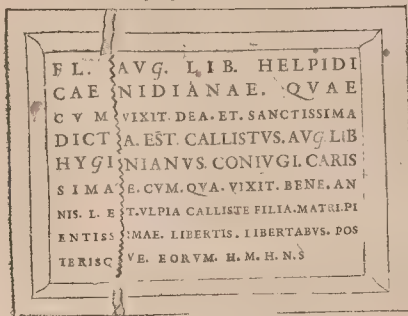 FL. AVG. LIB. HELPIDI
CAENIDIANAE. QVAE
CVM VIXIT. DEA. ET. SANCTISSIMA
DICTA. EST. CALLISTVS. AVG. LIB
HYGINIANVS. CONIVGI. CARIS
SIMAE. CVM. QVA. VIXIT. BENE. AN
NIS. L. ET. VLPIA CALLISTE FILIA. MATRI. PI
ENTISSIMAE. LIBERTIS. LIBERTABVS. POS
TERISQVE. EORVM. H. M. H. N. S